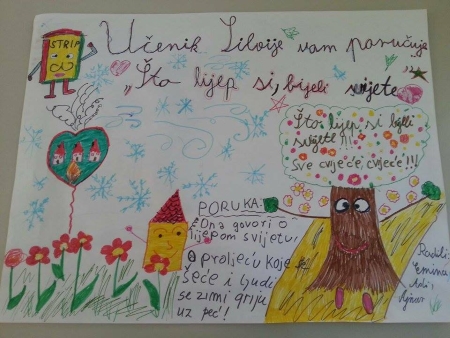 STRIP
Učenik Silvije vam poručuje
"Što lijep si, bijeli svijete"
Što lijep si bijeli
svijete!!!
Sve cvjeće, cvjeće!!!
PORUKA:
Ona govori o
lijepom svijetu,
O proljeću koje
šeće i ljudi
se zimi griju
uz peć!
Radili:
Emina